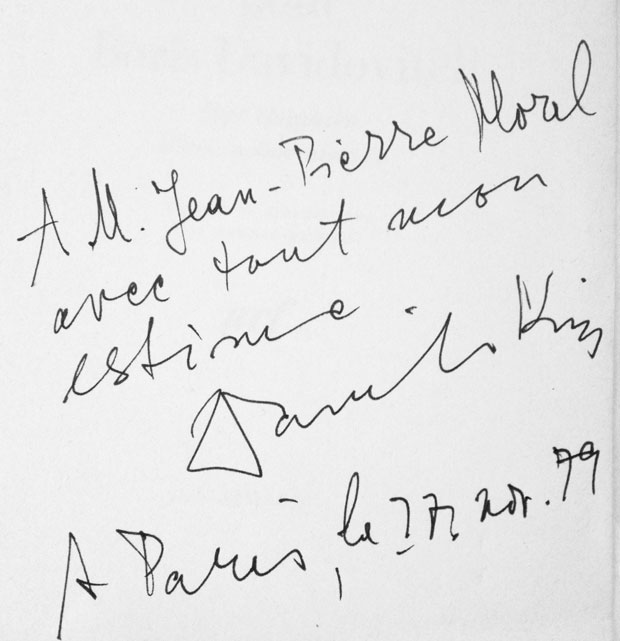 A M. Jean-Pierre Morel
avec tout mon
estime
Danilo Kiš
A Paris, le 27. nov. 79